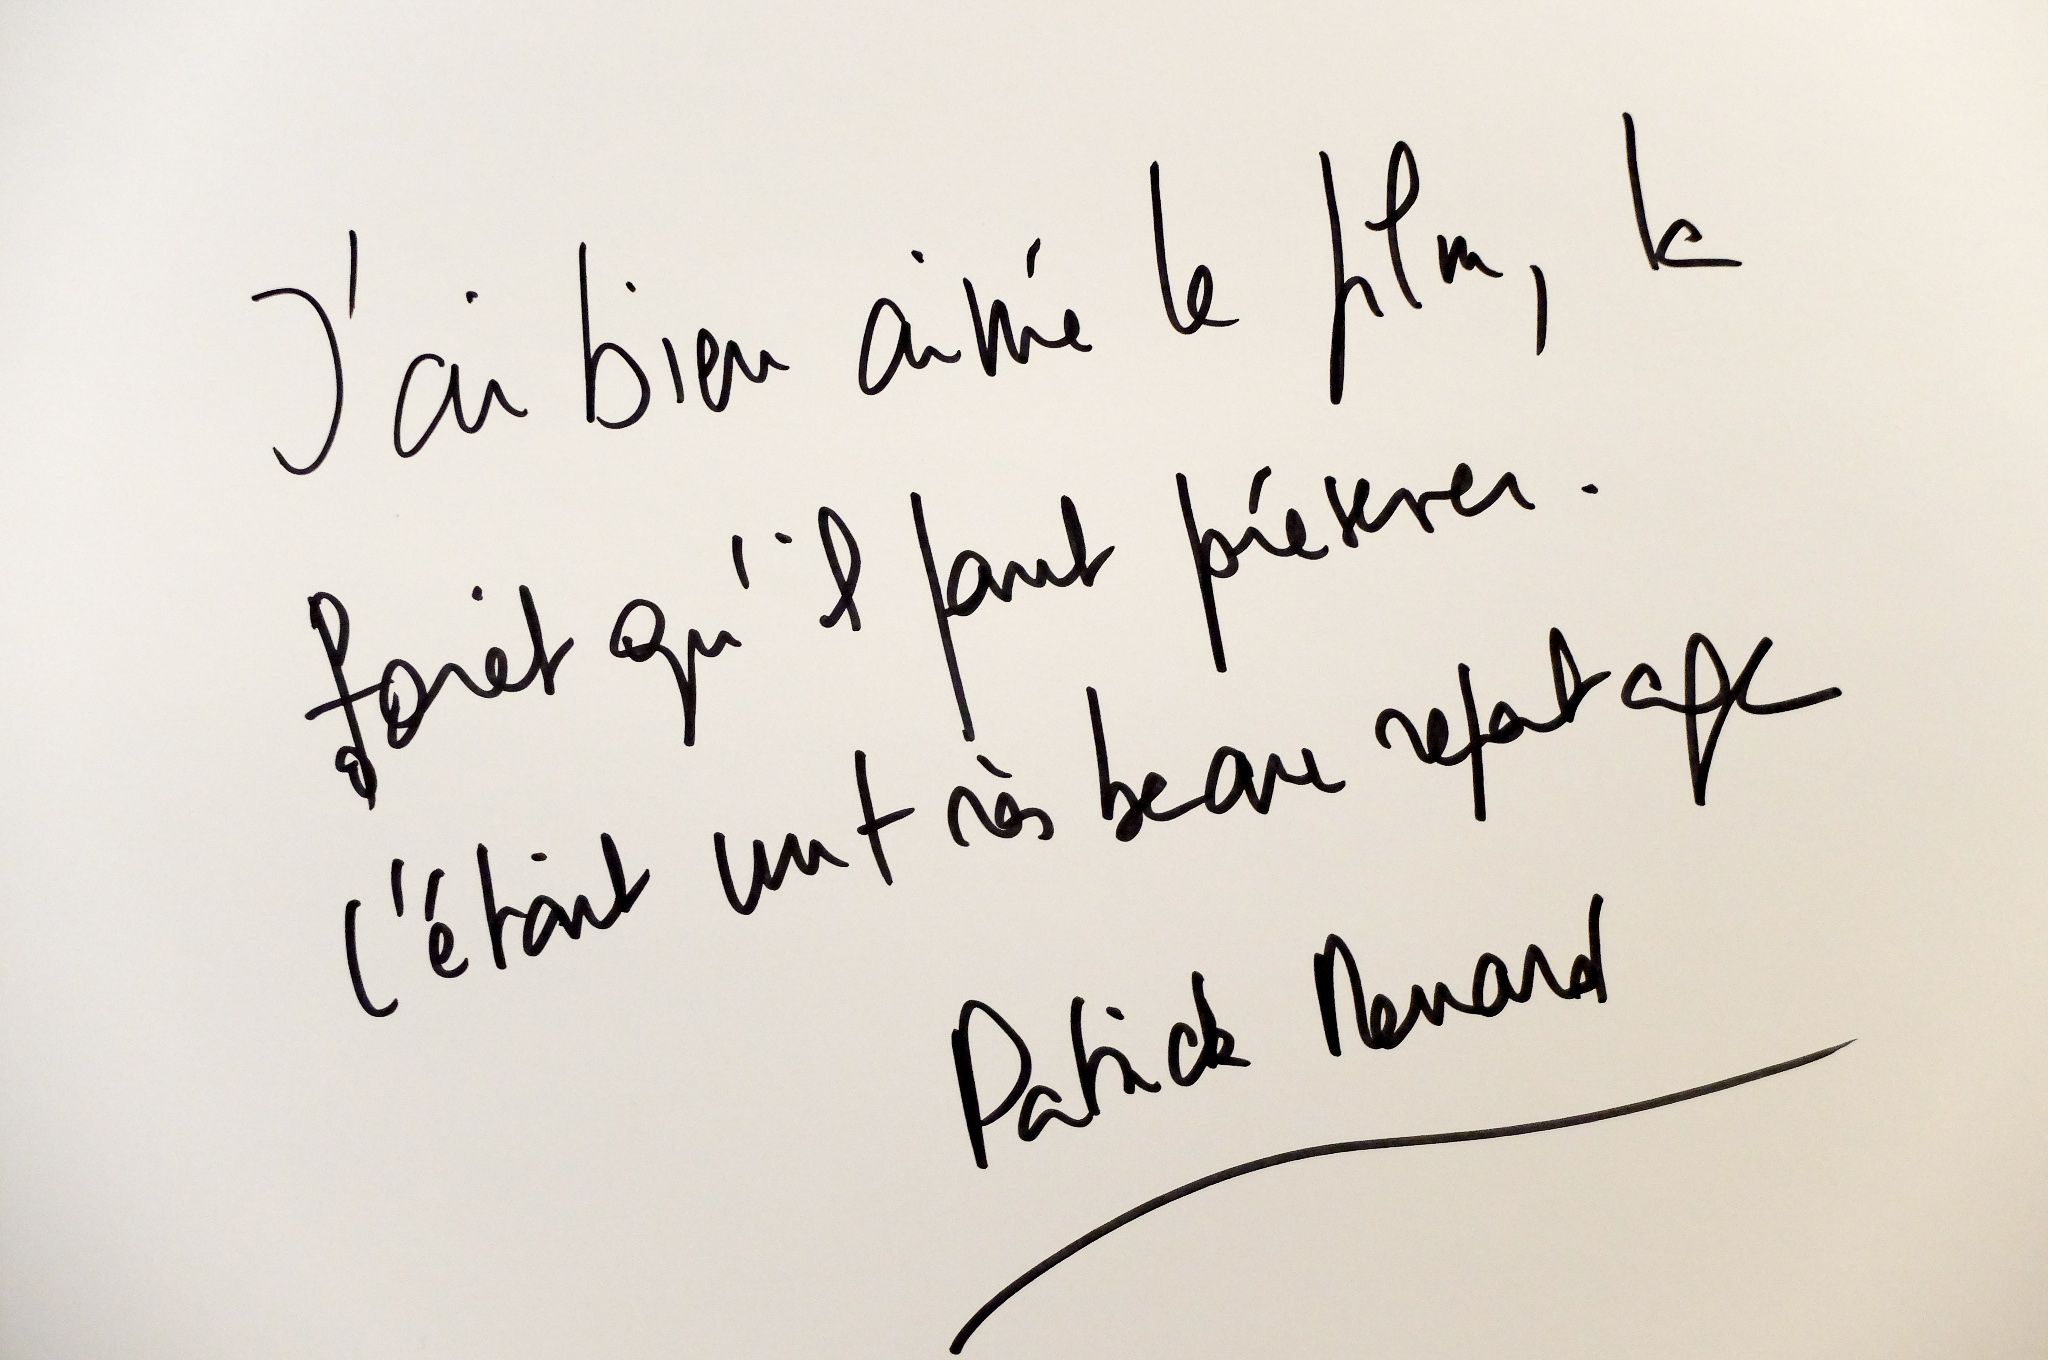 J'ai bien aimé le film, la
forêt qu'il faut préserver.
C'étant un très beau reportage
Patrick Menard